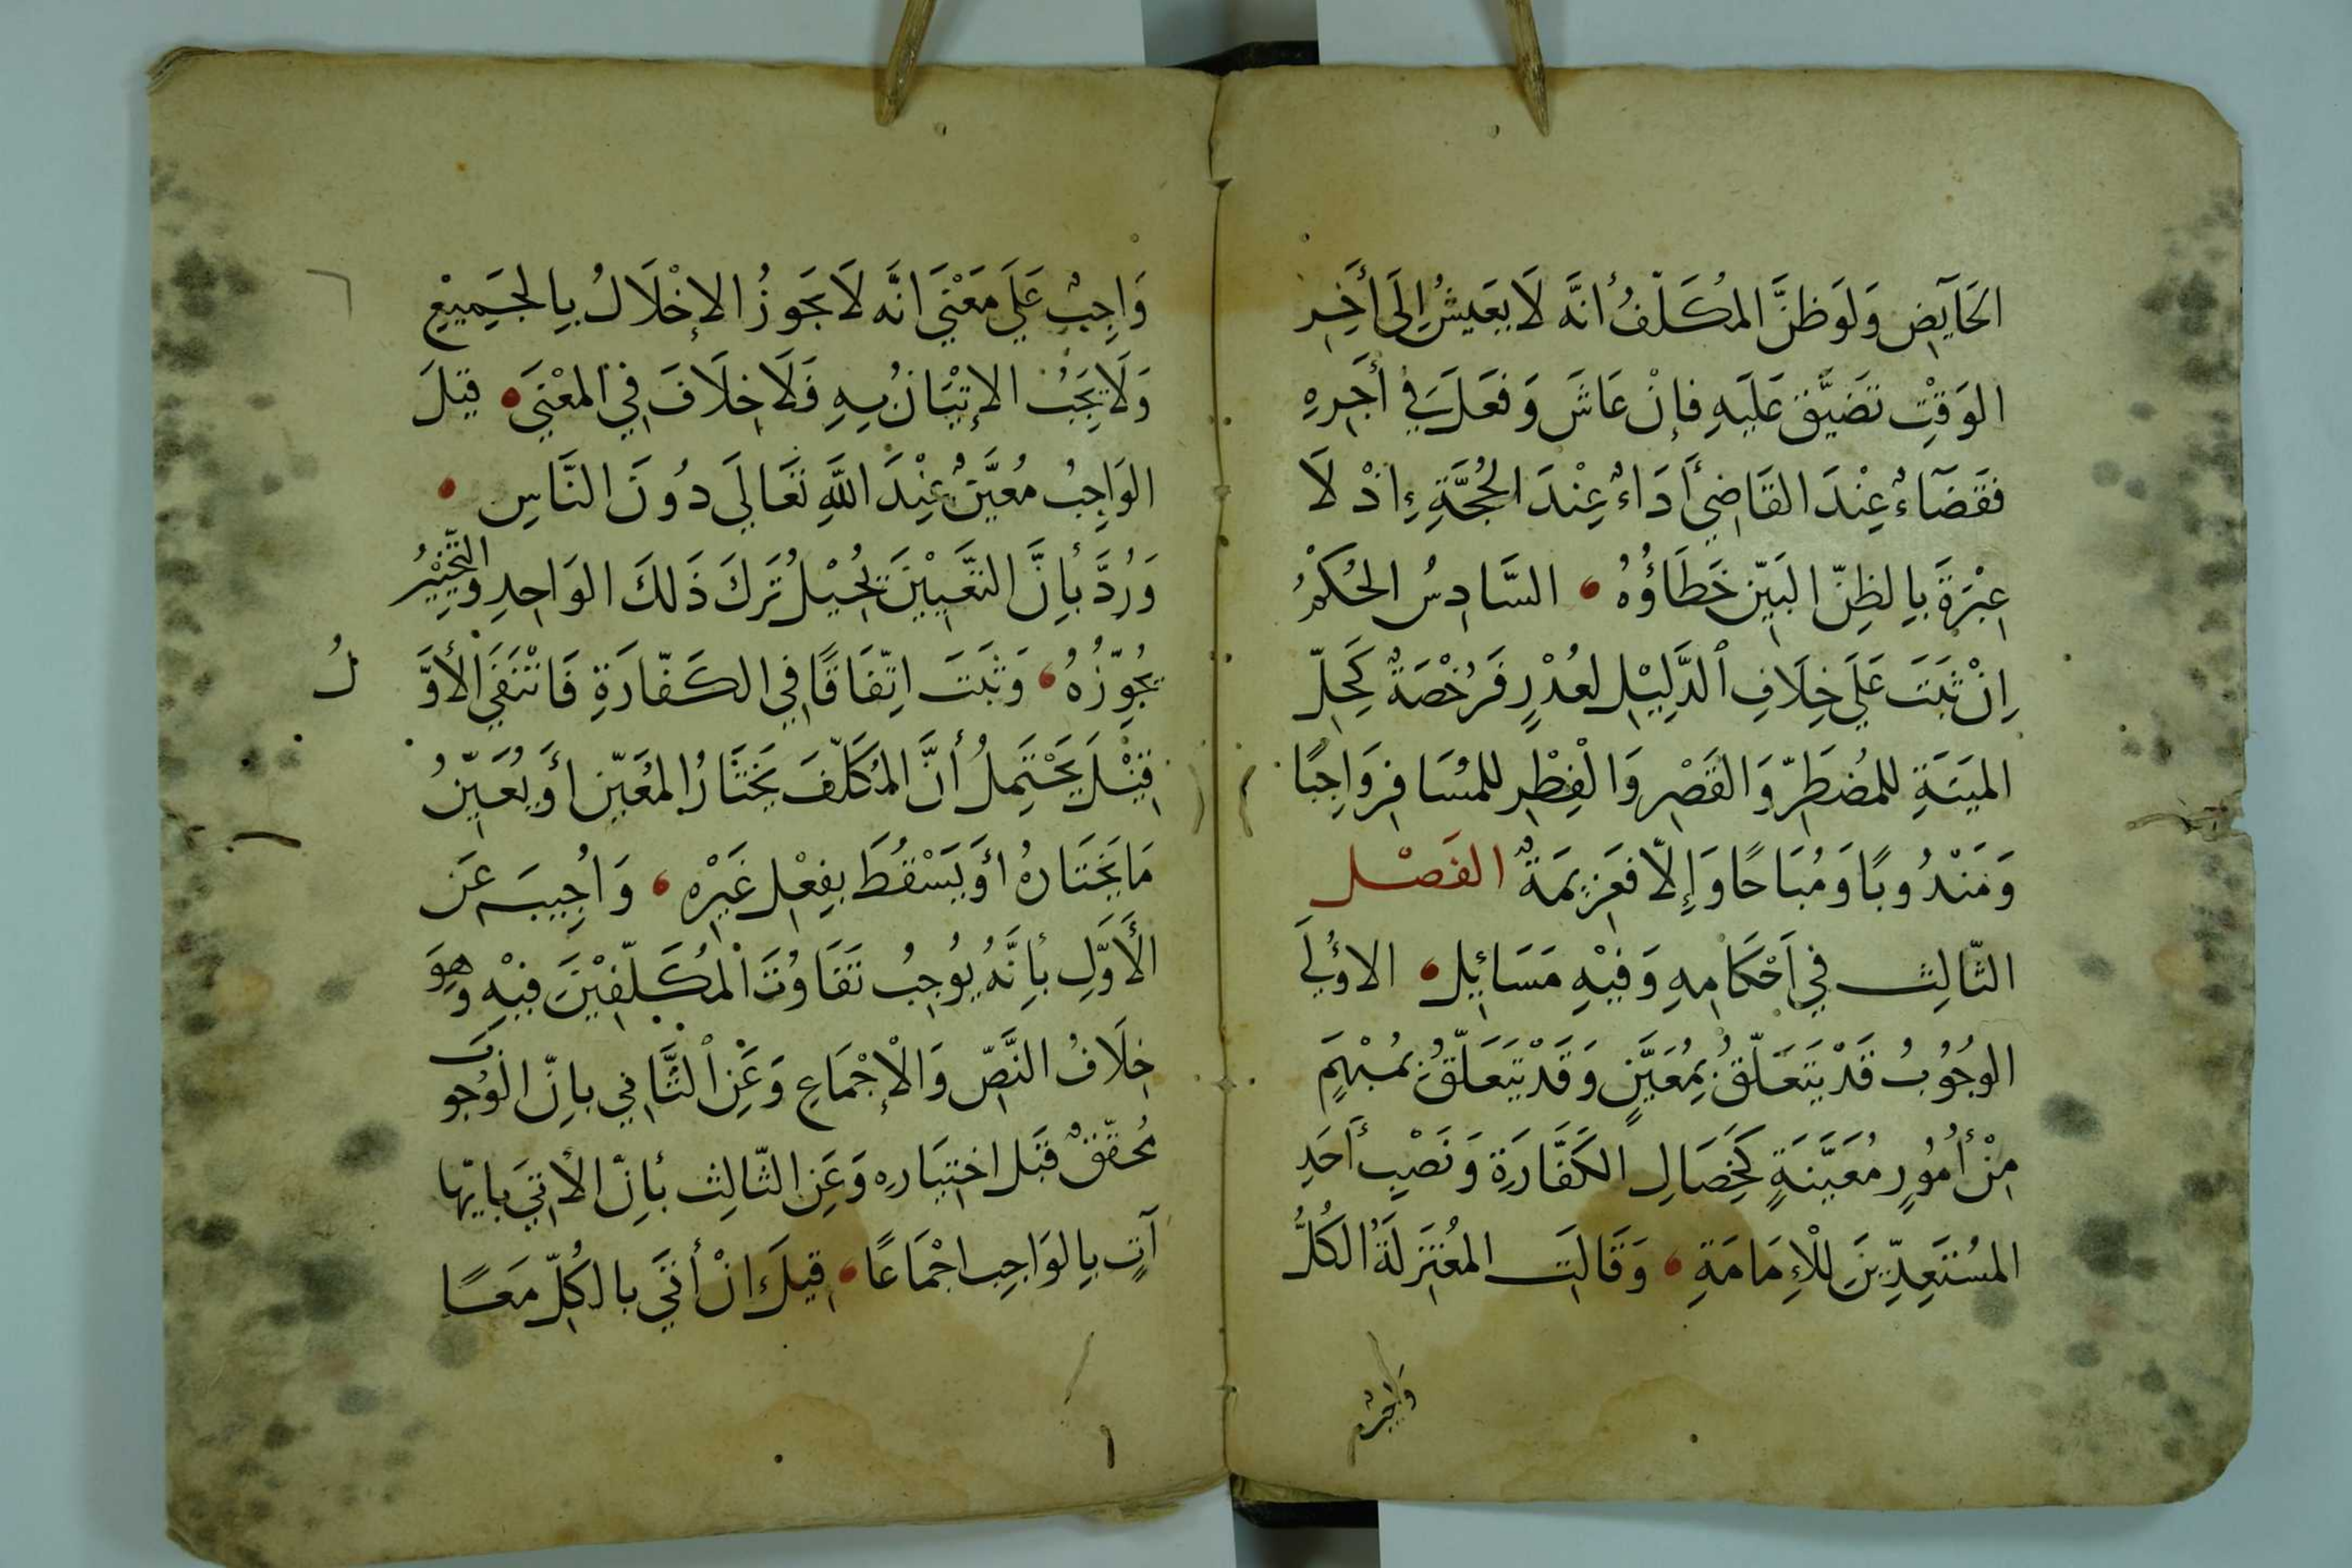 الحَآيِضِ وَلَوَظنَّ المُكَلّفُ أنَّه لَا يَعَيشُ إِلَى أَخِرِ
الوَقْتِ تَضَيَّقَ عَلَيَهِ فَإنْ عَاشَ وَفَعَلَ في أَجِرِهِ
فَقَضَآءٌ عِنْدَ القَاضِي أَدَاءٌ عِنْدَ الحُجَّةِ ءِاذْ لَا
عِبْرَةَ بِالظِنّ البَيّنِ خَطَاؤُهُ السَّادِسُ الحُكْمُ
اِنْ ثَبَتَ عَلَى خِلَافِ الدَّلِيْلِ لعُذْرٍ فَرُخْصَةٌ كَحِلّ
الميَتَةِ للمُضطَرِّ وَالقَصْرِ وَالْفِطْرِ للمُسَافِرِ وَاجِبًا
وَمَنْدُوبًا وَمُبَاحًا وَإِلّا فعَزِيمَةٌ الفَصْل
الثّالِث في اَحْكَامِهِ وَفيْهِ مَسَائِل الاوُلَى
الوجُوُبُ قَدْ يَتَعَلّقُ بِمُعَيَّنٍ وَقَدْ يَتَعَلّقُ بمُبْهَمٍ
مِنْ أمُوُرٍ مُعَيَّنَةٍ كَخِصَالِ الكَفَّارَةِ وَنَصْبِ أَحَدِ
المُسْتَعِدِّيْنَ لِلْإِمَامَةِ وَقَالَتِ المعُتَزِلَةُ الكُلُّ
وَاجِبٌ
وَاجِبٌ عَلَى مَعْنَى انَّه لَا يَجَوزُ الإخْلَالُ بِالجَمِيْعِ
وَلَا يَجِبُ الإتيْاَنُ بِهِ فَلَا خِلَافَ فِي المعْنَى قيْلَ
الوَاجِبُ مُعيَّنٌ عِنْدَ اللَّهِ تَعَالَى دُونَ النَّاسِ
وَرُدَّ بأِنَّ التعَّيِيْنَ يُحِيْلُ تَرَكَ ذَلكَ الوَاحِدِ وَالتَّخْيِيْرُ
يُجَوِّزُهُ وَثَبَتَ اتِّفَاقًا فِي الكَفّارَةِ فَانْتَفَى الأَوَّلُ
قِيْلَ يَحْتَمِلُ أَنَّ المُكَلّفَ يَخْتَارُ المعُيّن أَوَيُعَيّنُ
مَا يَخْتَارُهُ أَوَيَسْقُطَ بِفِعْلِ غَيَرْهِ وَاُجِيبَ عَن
الأَوَّلِ بأِنَّهُ يُوجِبُ تَفَاوُتَ المُكَلّفِيْنَ فيْهِ وَهوَ
خِلَافُ النَّصّ وَالْإِجْمَاعِ وَعَنِ الثَّانِي بانّ الوُجُوبَ
مُحَقّقٌ قَبْلَ اخْتِيَارِهِ وَعَنِ الثّالِث بأنّ الأتِيَ بايّهَا
آتٍ بِالوَاجِبِ اجْمَاعًا قِيلَ انْ أَتَى بالكُلّ مَعًا